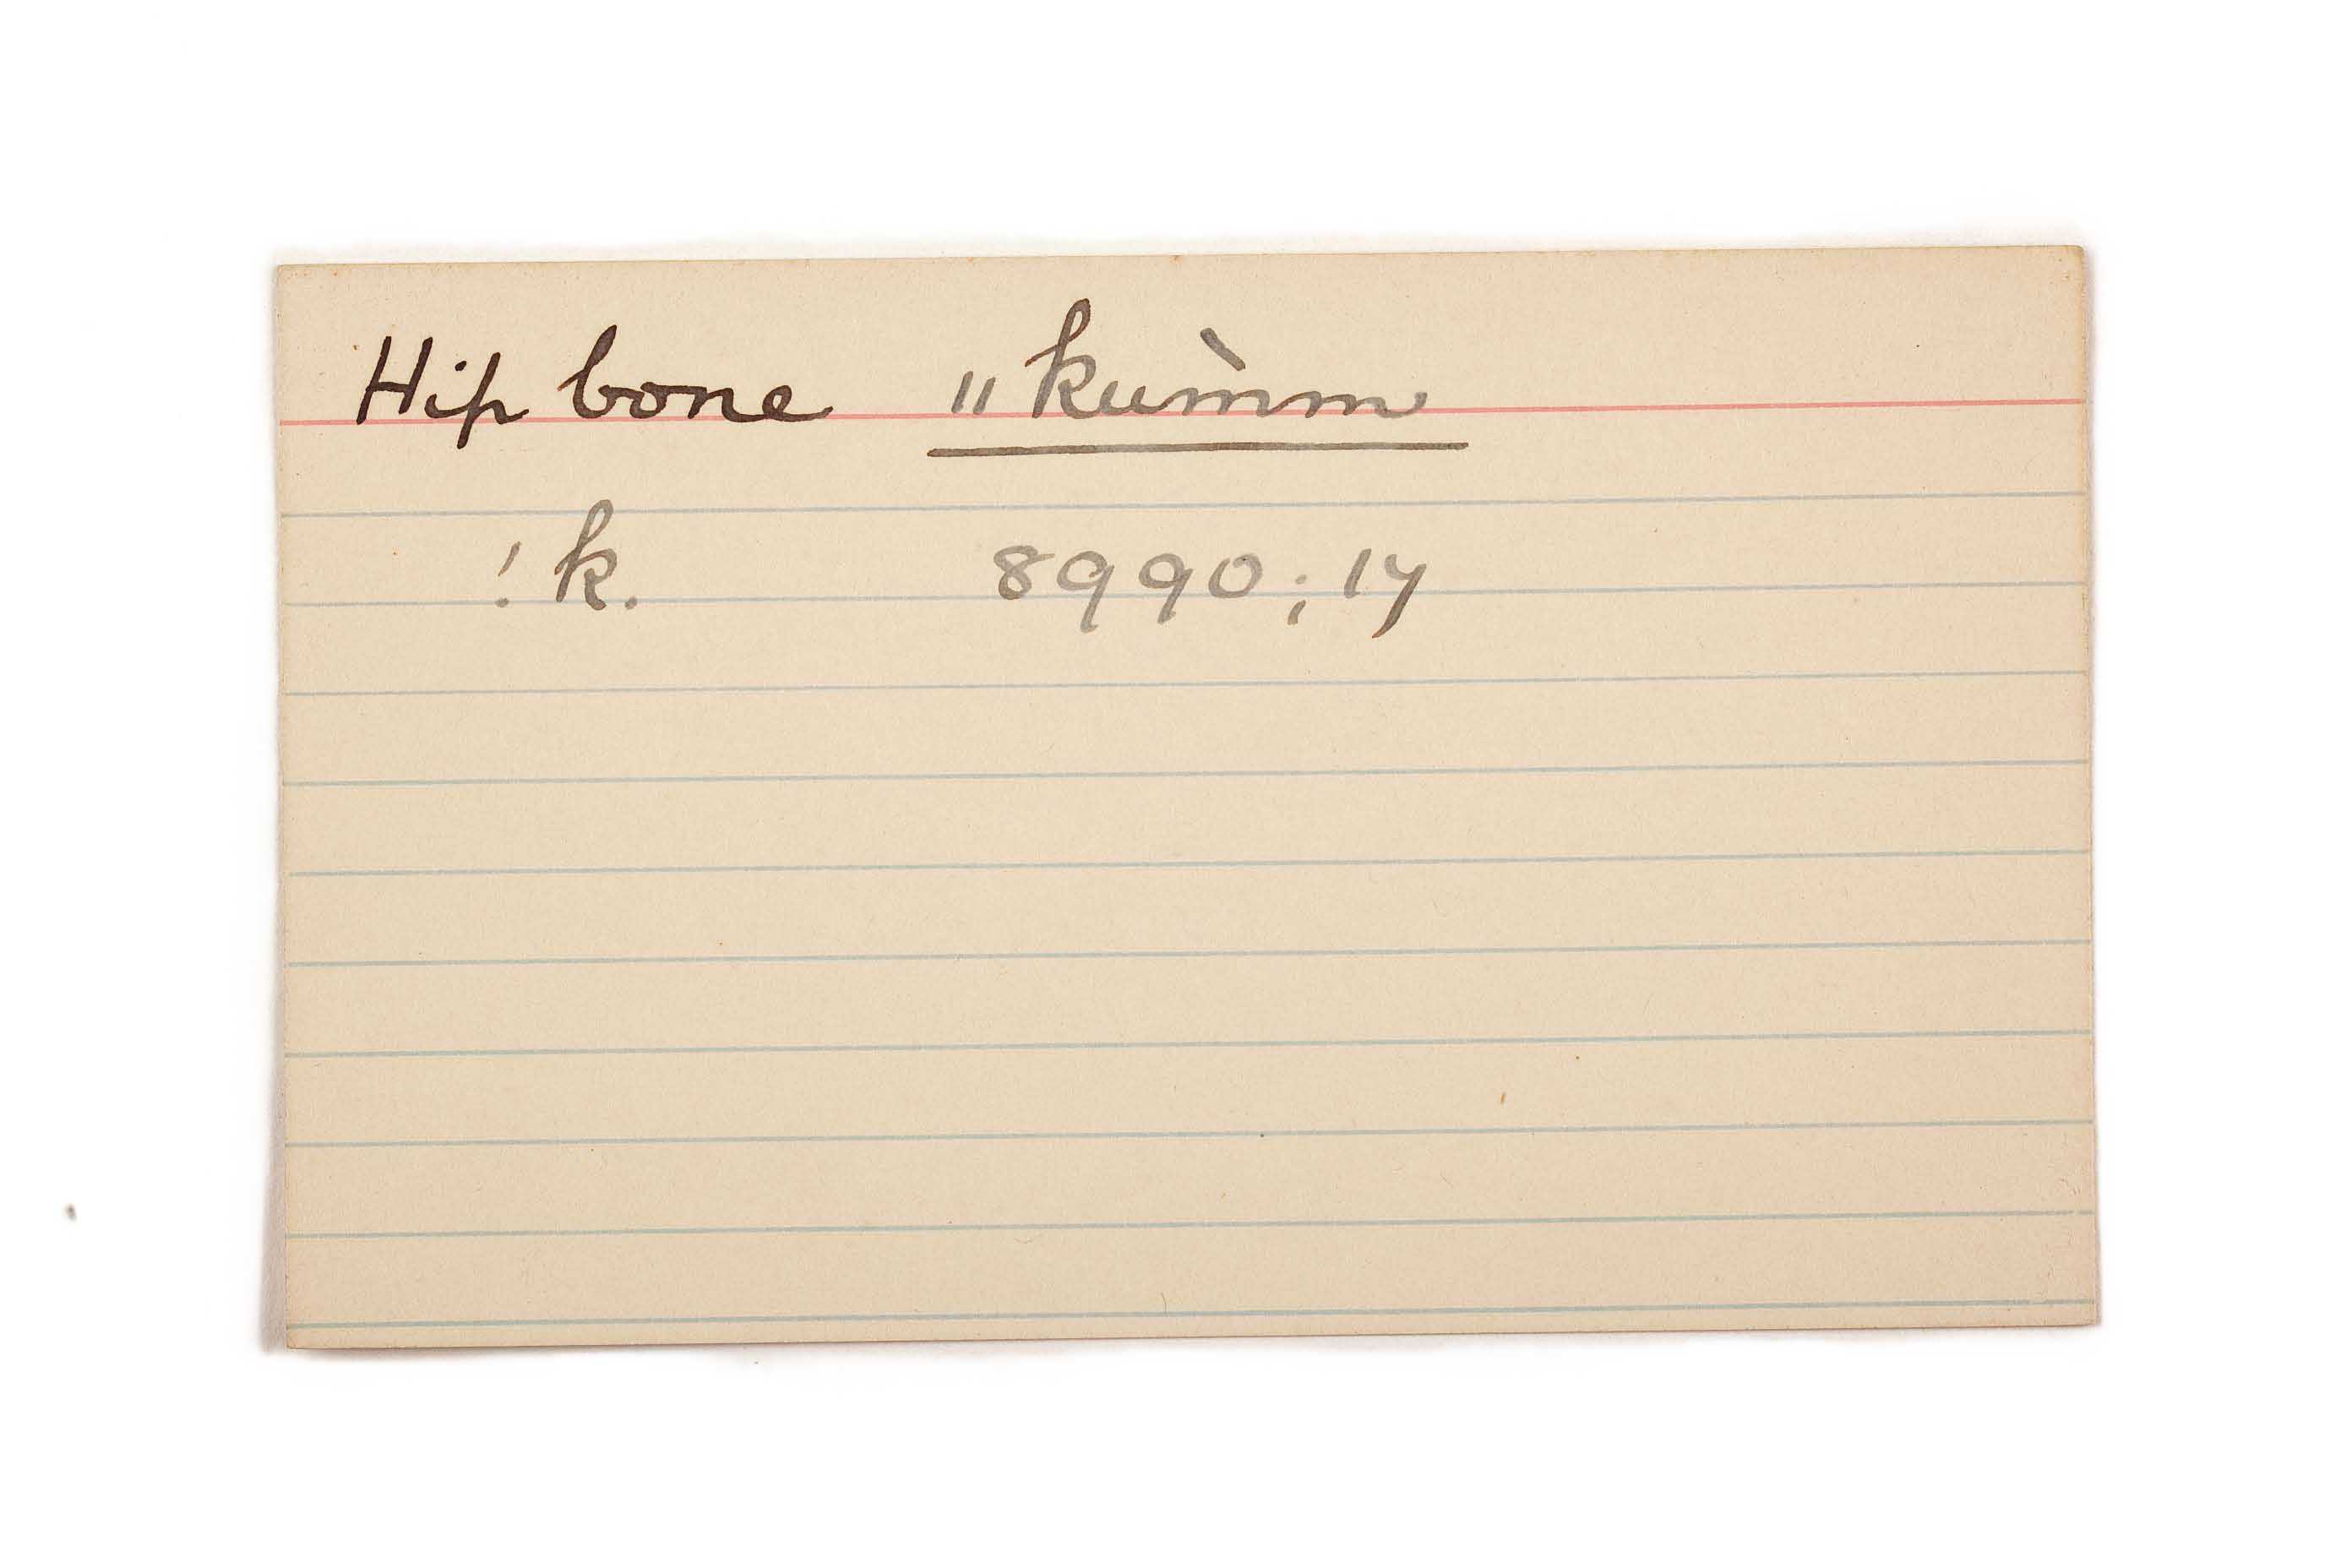 Hip bone ǁkum̀m
!k. 8990; 17